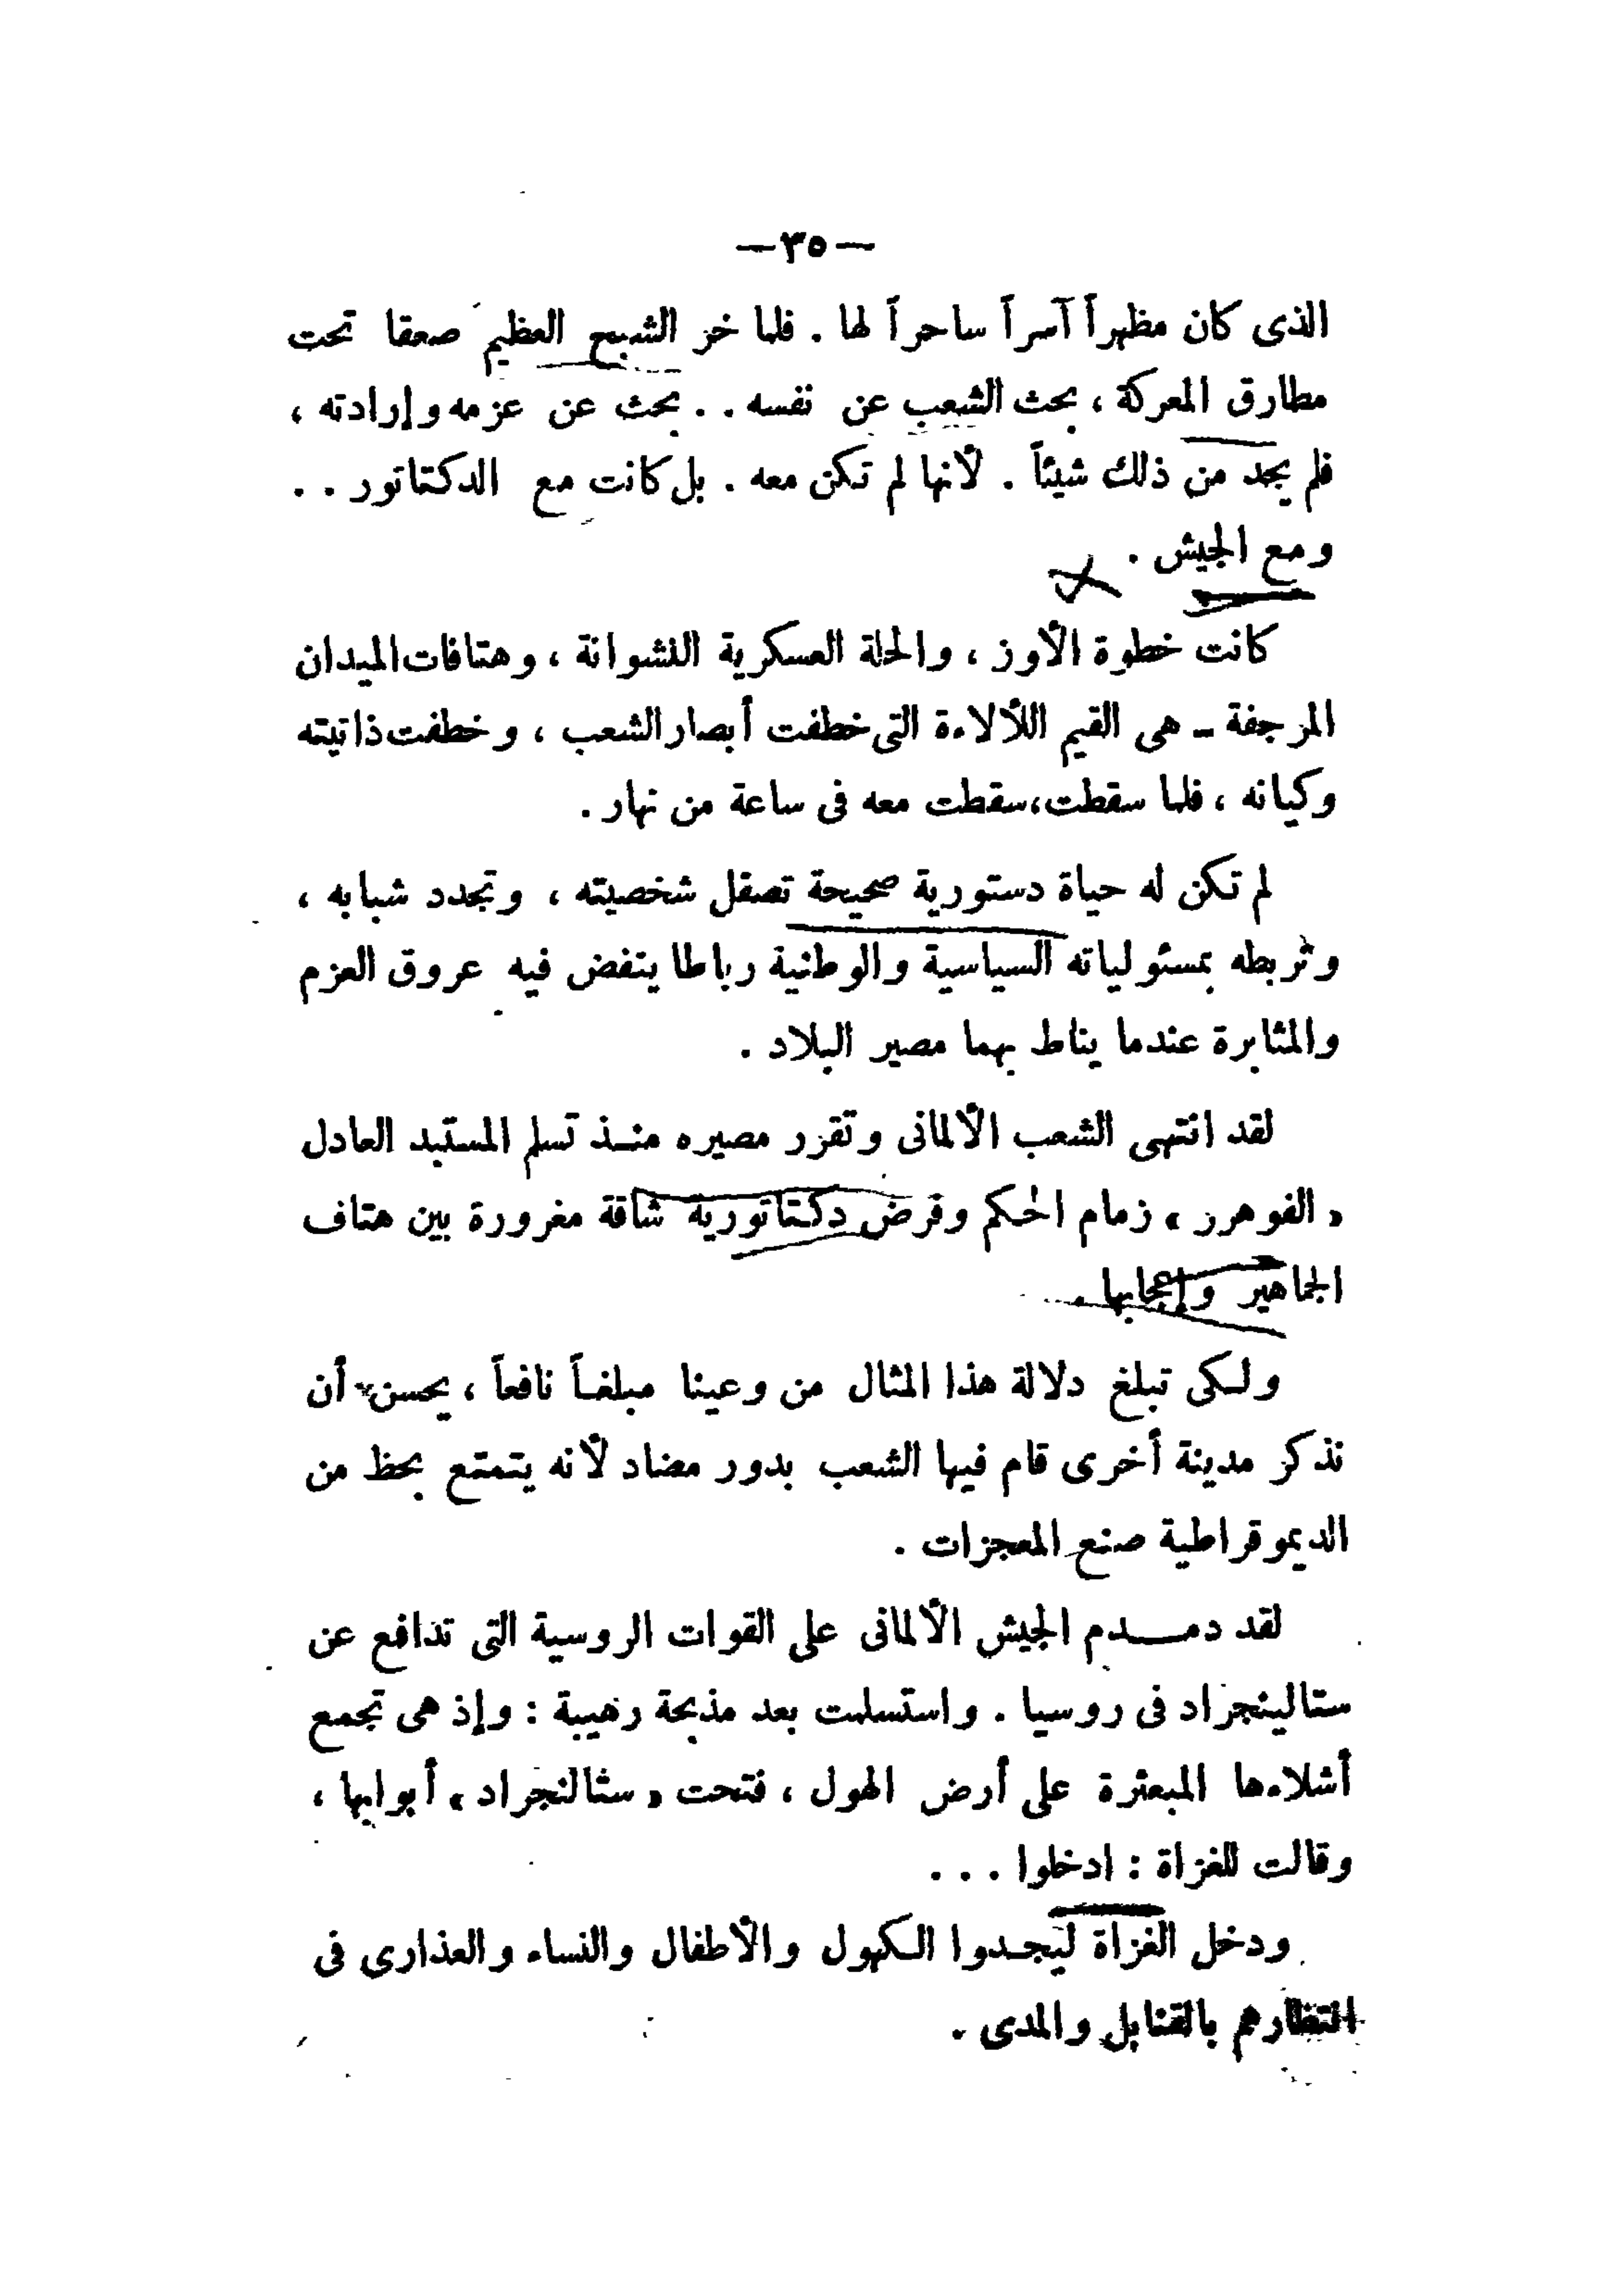 — ٣٥ —
الذى كان مظهراً آسراً ساحراً لها . فلما خر الشبح العظيم صعقا تحت
مطارق المعركة ، بحث الشعب عن نفسه . . بحث عن عزمه وإرادته ،
فلم يجد من ذلك شيئاً . لأنها لم تكن معه . بل كانت مع الدكتاتور . .
ومع الجيش .
كانت خطوة الأوز ، والحلة العسكرية النشوانة ، وهتافات الميدان
المرجفة ــ هى القيم اللألاءة التى خطفت أبصار الشعب ، وخطفت ذاتيته
وكيانه ، فلما سقطت، سقطت معه فى ساعة من نهار .
لم تكن له حياة دستورية صحيحة تصقل شخصيته ، وتجدد شبابه ،
وتربطه بمسئولياته السياسية والوطنية رباطا ينفض فيه عروق العزم
والمثابرة عندما يناط بهما مصير البلاد .
لقد انتهى الشعب الألمانى وتقرر مصيره منـذ تسلم المستبد العادل
« الفوهرر » زمام الحكم وفرض دكتاتورية شاقة مغرورة بين هتاف
الجماهير وإعجابها .
ولكى تبلغ دلالة هذا المثال من وعينا مبلغاً نافعاً ، يحسن أن
نذكر مدينة أخرى قام فيها الشعب بدور مضاد لأنه يتمتع بحظ من
الديموقراطية صنع المعجزات .
لقد دمــدم الجيش الألمانى على القوات الروسية التى تدافع عن
ستالينجراد فى روسيا . واستسلمت بعد مذبحة رهيبة : وإذ هى تجمع
أشلاءها المبعثرة على أرض الهول ، فتحت « ستالنجراد » أبوابها ،
وقالت للغزاة : ادخلوا . . .
ودخل الغزاة ليجـدوا الكهول والأطفال والنساء والعذارى فى
انتظارهم بالقنابل والمدى .